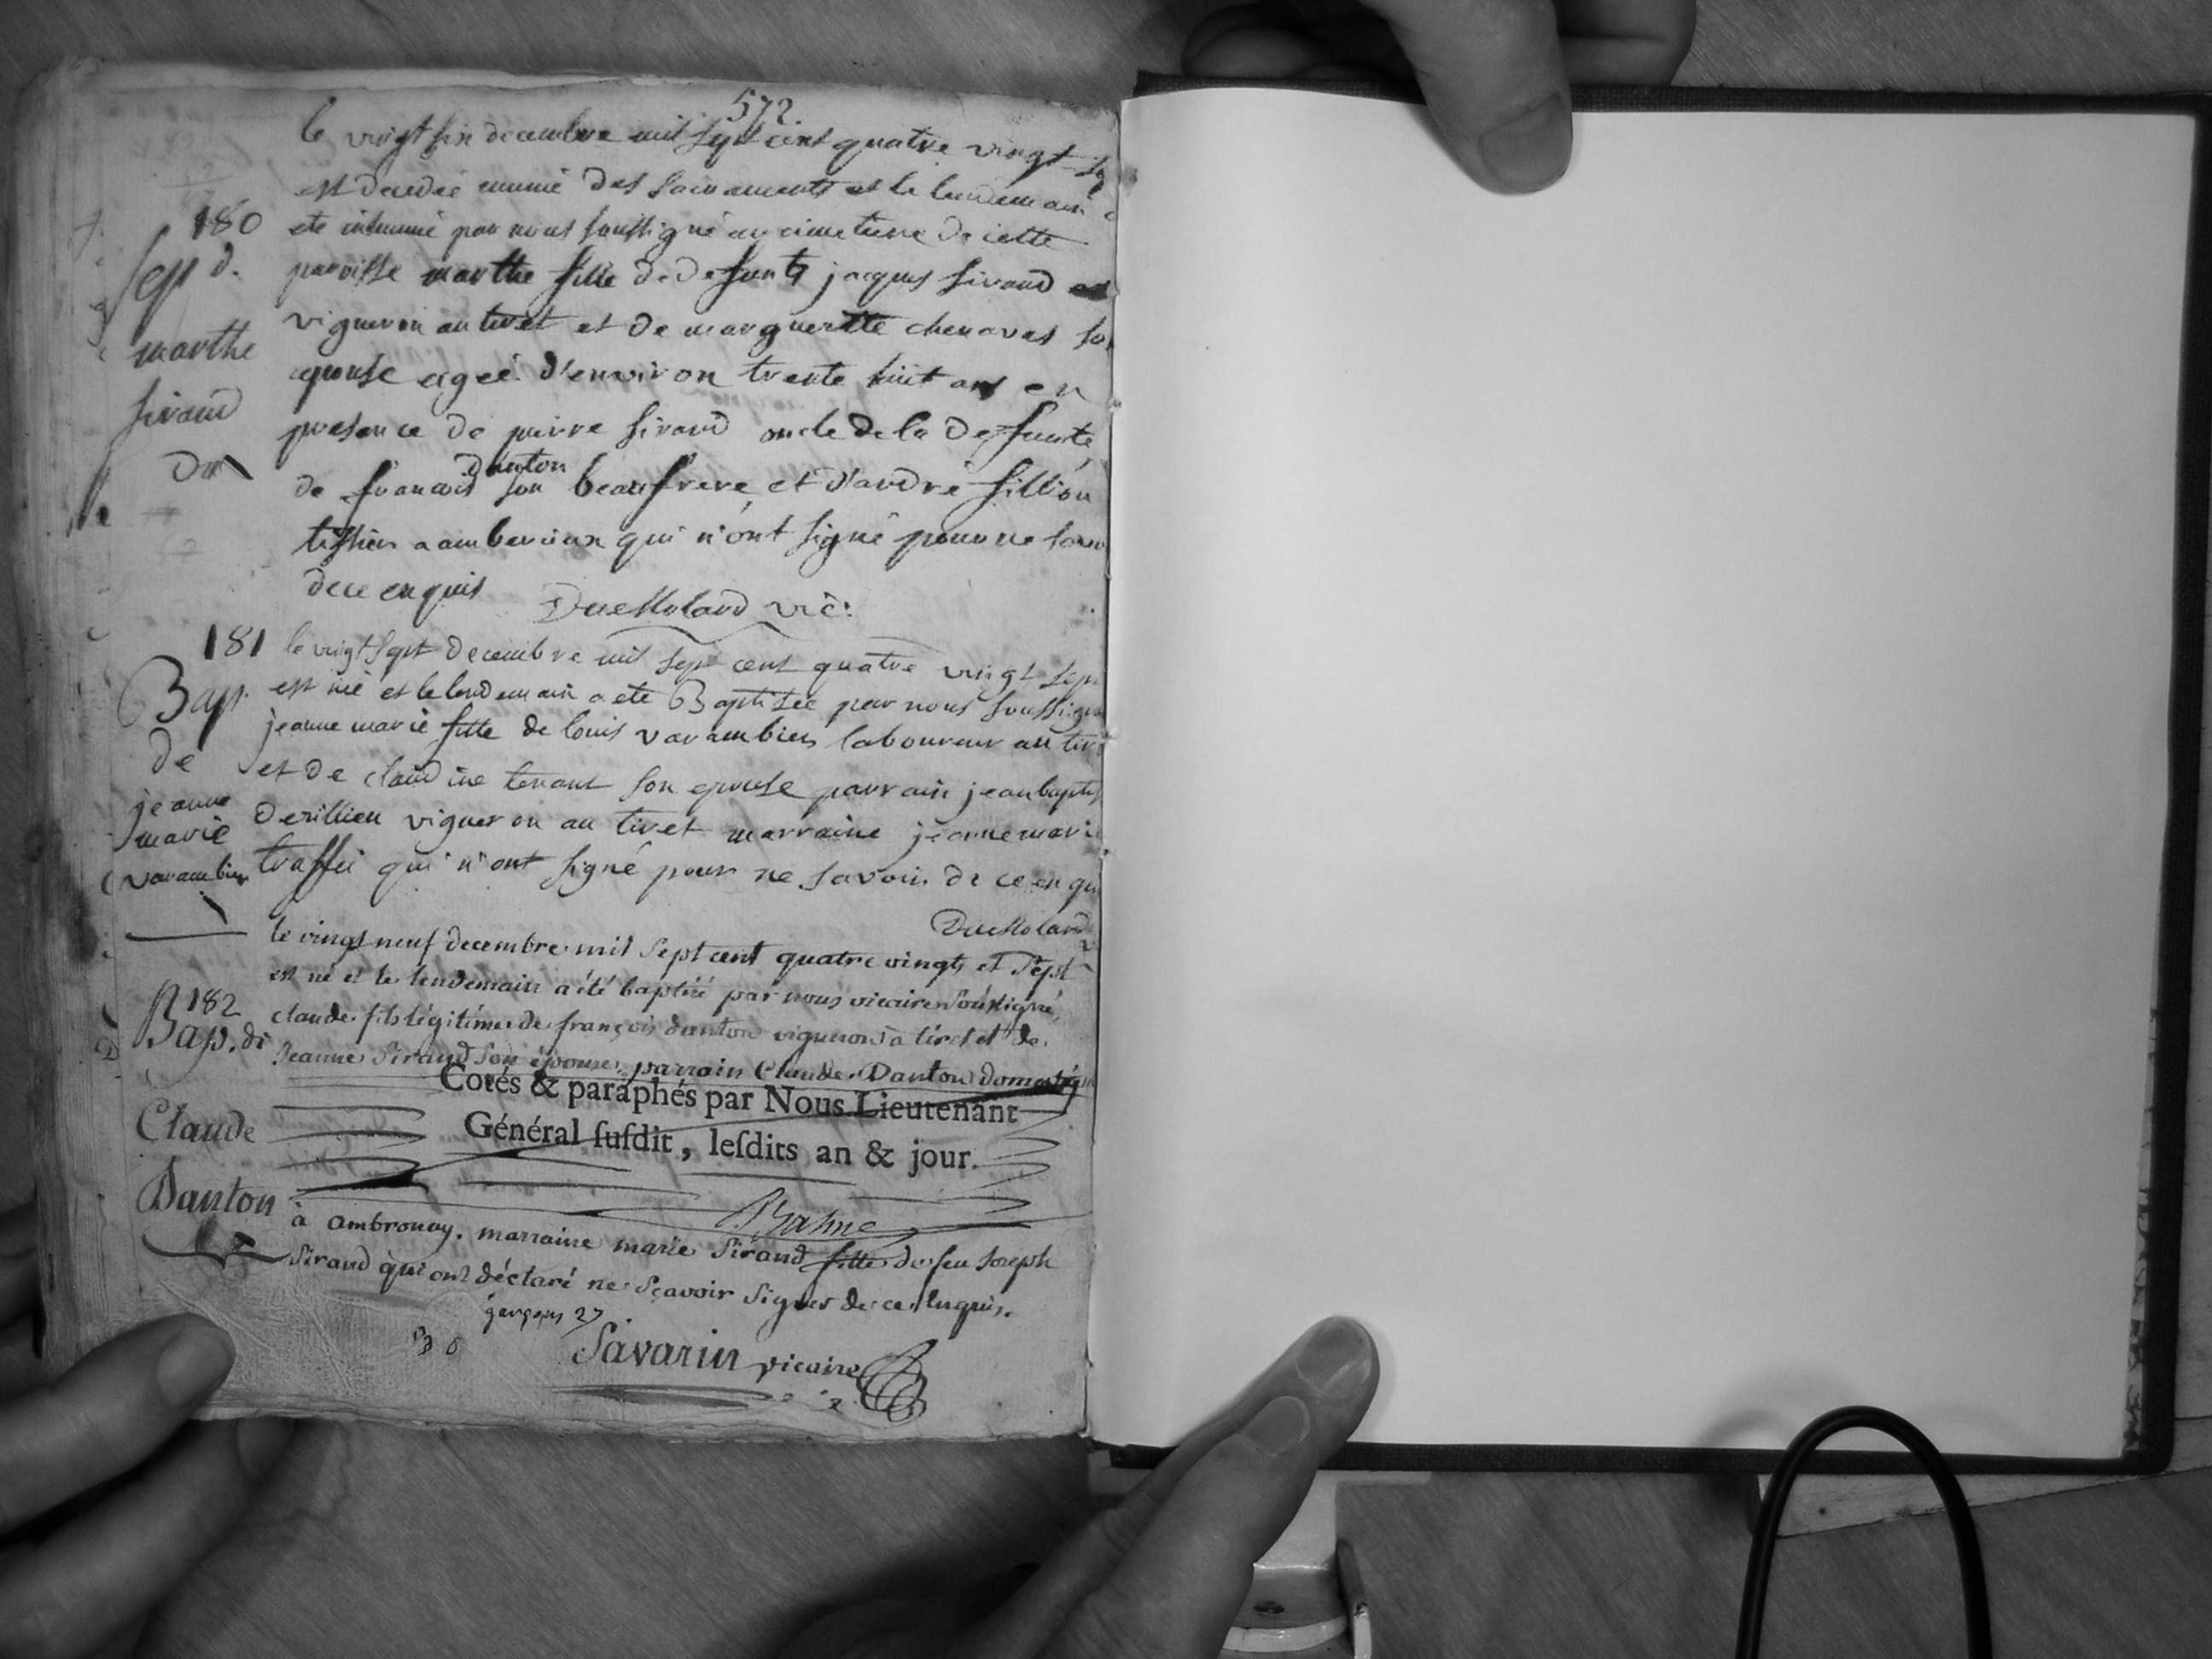 572.
le vingt six decembre mil sept cent quatre vingt
est decedée munie des sacrements et le lendemain
180
eté inhumé par nous soussigné au cimetiere de cette
sep d.
paroisse marthe fille de defunts jacques sirand
vigneron au tiret et de marguerite chenavas
marthe
epouse agée d'environ trente huit ans en
sirand
presence de pierre sirand oncle de la defunte,
danton
de francois son beaufrere, et d'andré sillion
tissier a amberieux qui n'ont signé pour ne
de ce enquis
DueMolard vic:
181
le vingt sept decembre mil sept cent quatre vingt sept
Bap.
est né et le lendemain a eté Baptisée par nous
jeanne marie fille de louis varambier laboureur au
de
et de claudine tenant son epouse parrain jean
jeanne
marie
derillieu vigneron au tiret marraine jeanne marie
varambier
traffei qui n'ont signé pour ne savoir de ce
DueMolard
le vingt neuf decembre mil sept cent quatre vingts et sept
est né et le lendemain a été baptisé par nous vicaire soussigné,
182
Bap. de
claude fils légitime de françois danton vigneron à tiret et de
Jeanne Sirand son épouse, parrain Claude Danton domestique
Cotés & paraphés par Nous Lieutenant
Claude
Général susdit, lesdits an & jour.
Danton
à ambronay. marraine marie Sirand fille de feu Joseph
Sirand qui ont déclaré ne sçavoir signer de ce enquis.
garçons 27
Savarin vicaire